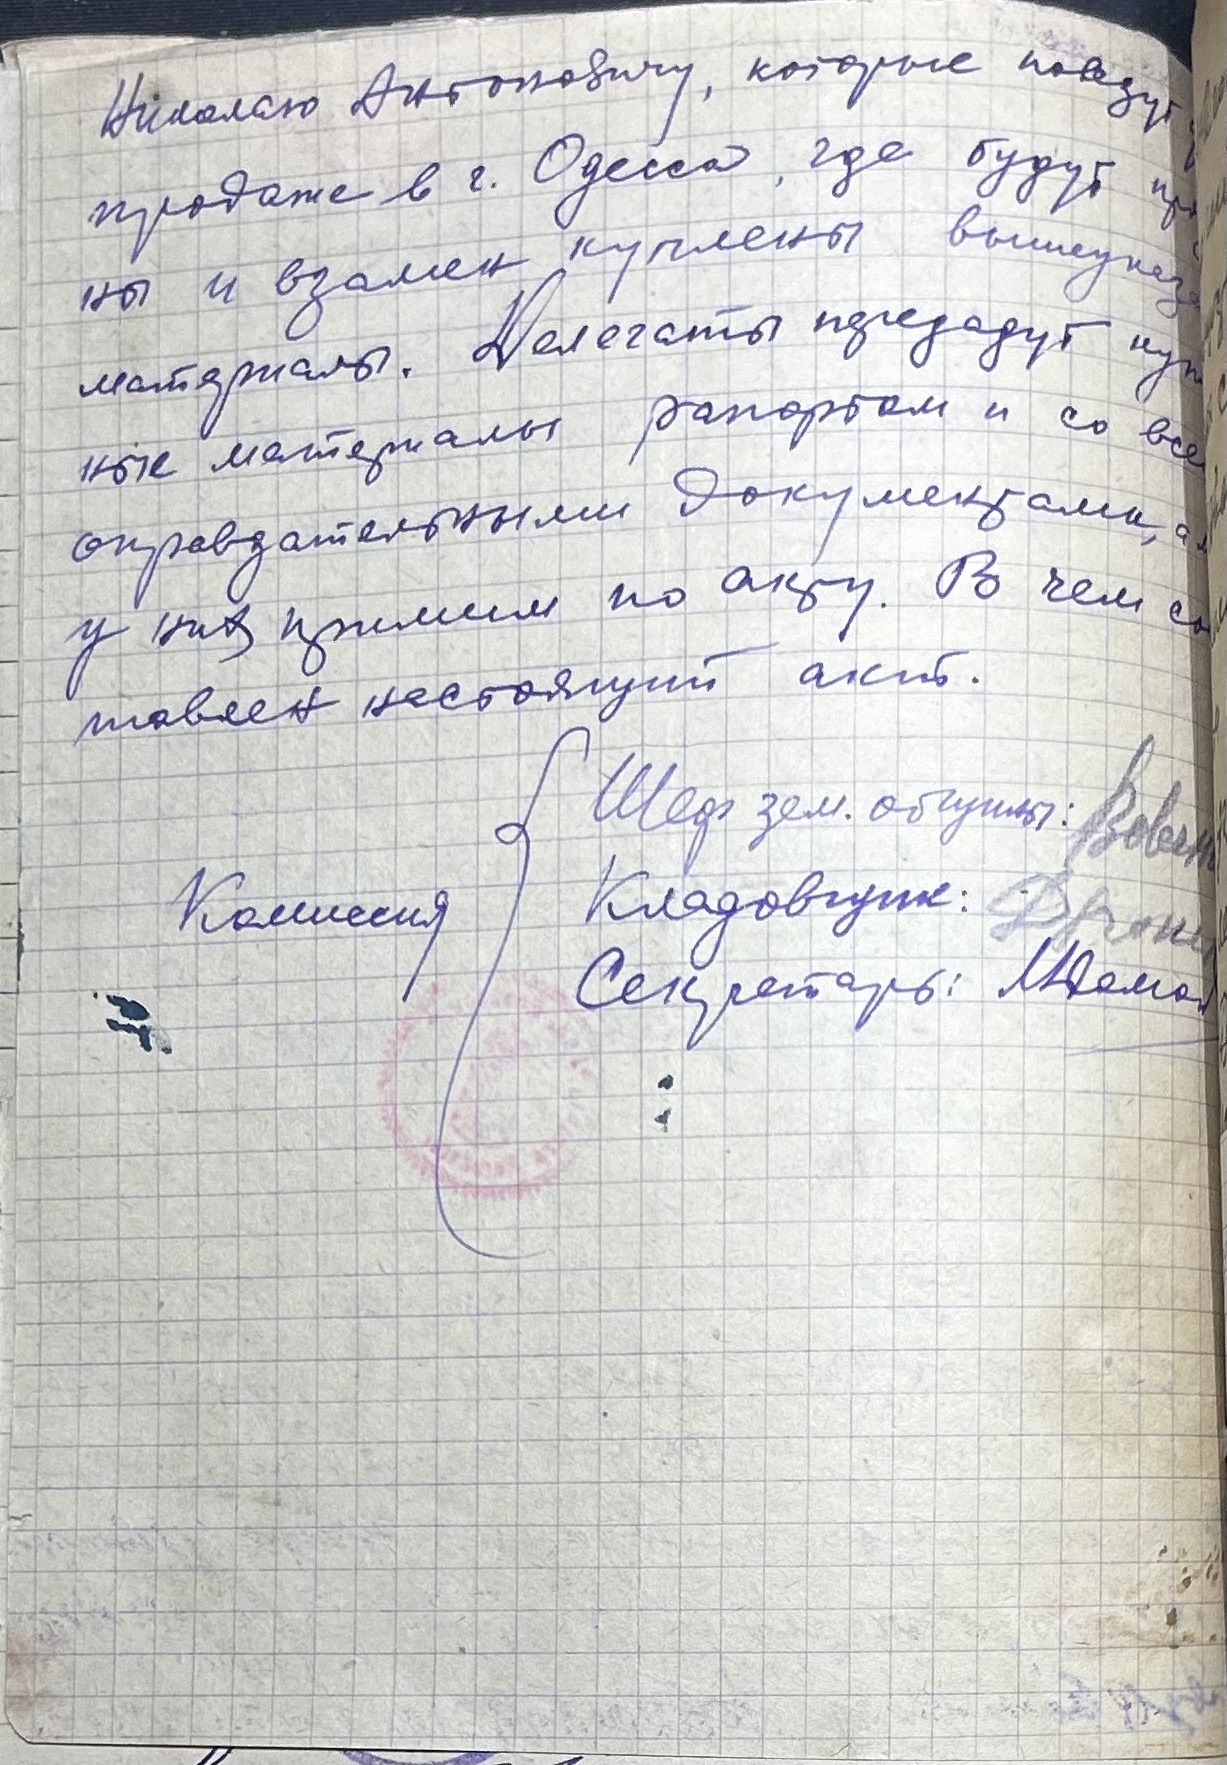 Николаю Антоновичу, которые повезут
продаже в г. Одесса, где будут
ны и взамен куплены вышеуказа
материалы. Делегаты передадут куп
ные материалы рапортом и со все
оправдательными документами, а
у них примим по акту. В чем сос
тавлен настоящий акт.
Комиссия
Шеф зем. общины:
Кладовщик:
Секретарь: